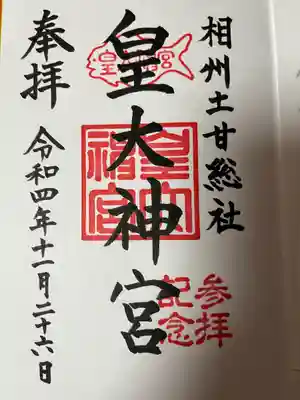 相州土甘総社
皇大神宮
皇大神宮
参拝
記念
奉拝
令和四年十一月二十六日